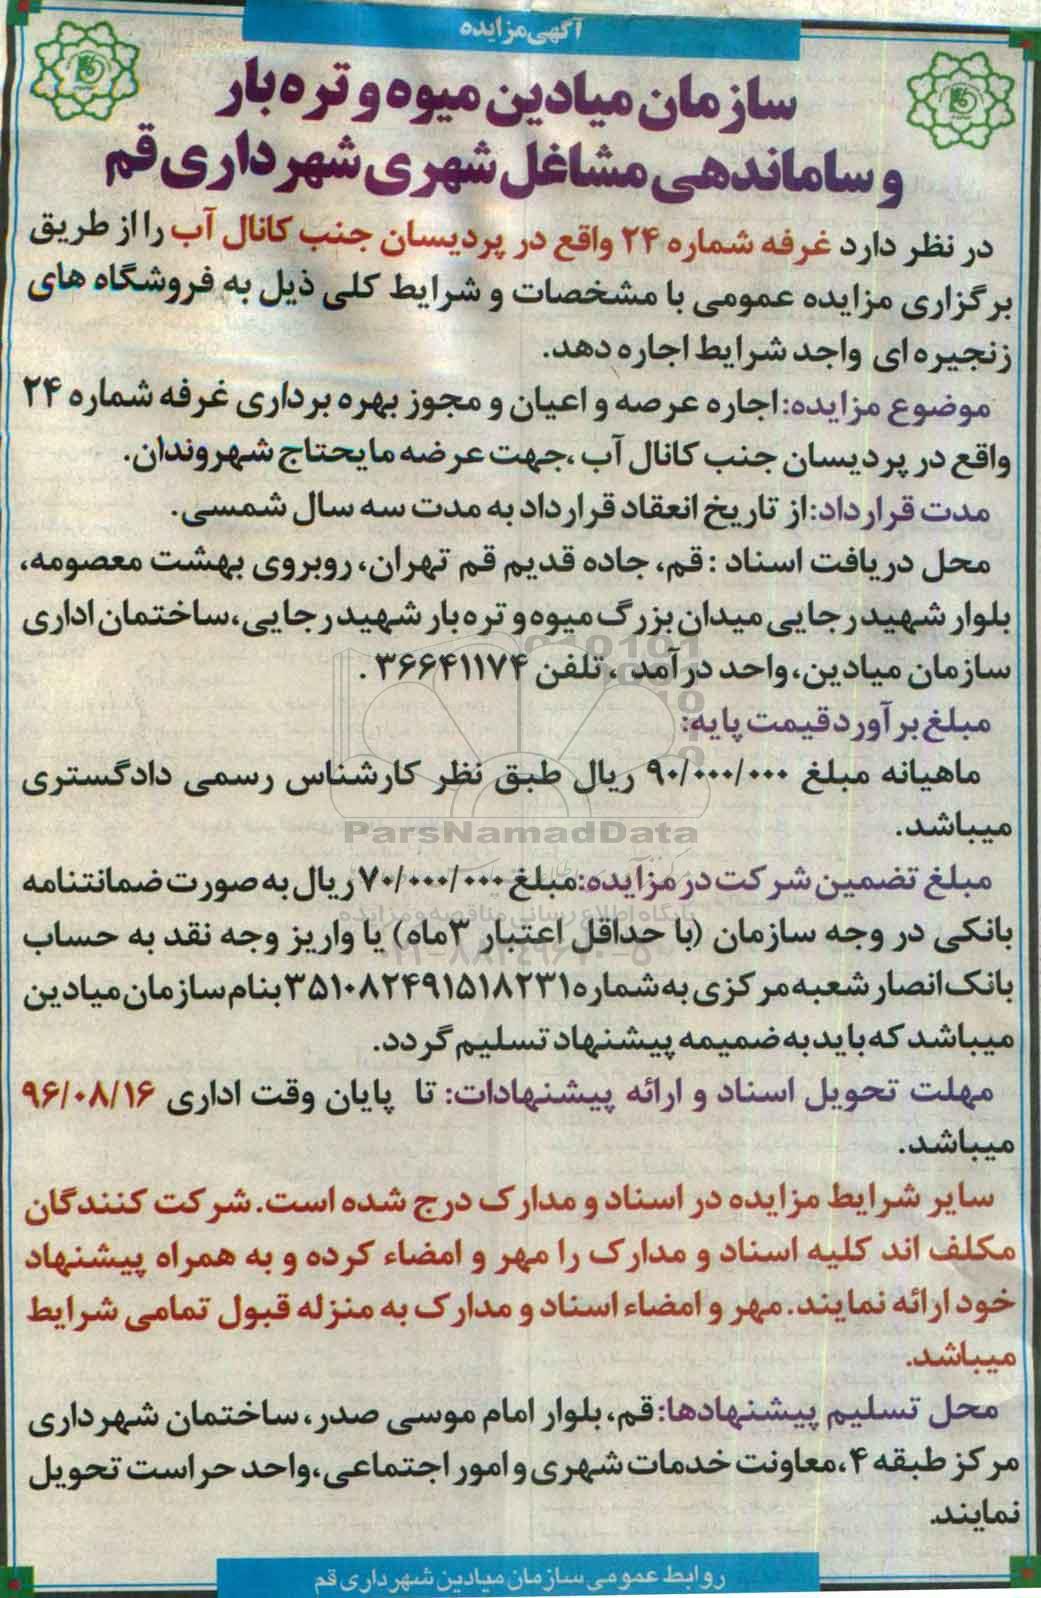 آگهی مزایده
سازمان میادین میوه و تره بار
و ساماندهی مشاغل شهری شهرداری قم
در نظر دارد غرفه شماره ۲۴ واقع در پردیسان جنب کانال آب را از طریق
برگزاری مزایده عمومی با مشخصات و شرایط کلی ذیل به فروشگاه های
زنجیره ای واجد شرایط اجاره دهد.
موضوع مزایده: اجاره عرصه و اعیان و مجوز بهره برداری غرفه شماره ۲۴
واقع در پردیسان جنب کانال آب ،جهت عرضه مایحتاج شهروندان.
مدت قرارداد: از تاریخ انعقاد قرارداد به مدت سه سال شمسی.
محل دریافت اسناد : قم، جاده قدیم قم تهران، روبروی بهشت معصومه،
بلوار شهید رجایی میدان بزرگ میوه و تره بار شهید رجایی، ساختمان اداری
سازمان میادین، واحد درآمد ، تلفن ۳۶۶۴۱۱۷۴ .
مبلغ برآورد قیمت پایه:
ماهیانه مبلغ ۹۰/۰۰۰/۰۰۰ ریال طبق نظر کارشناس رسمی دادگستری
میباشد.
ParsNamadData
مبلغ تضمین شرکت در مزایده: مبلغ ۷۰/۰۰۰/۰۰۰ ریال به صورت ضمانتنامه
پایگاه اطلاع رسانی مناقصه و مزایده
بانکی در وجه سازمان (با حداقل اعتبار ۳ماه) یا واریز وجه نقد به حساب
۰۲۱-۸۸۳۴۹۶۷۰-۵
بانک انصار شعبه مرکزی به شماره ۳۵۱۰۸۲۴۹۱۵۱۸۲۳۱ بنام سازمان میادین
میباشد که باید به ضمیمه پیشنهاد تسلیم گردد.
مهلت تحویل اسناد و ارائه پیشنهادات: تا پایان وقت اداری ۹۶/۰۸/۱۶
میباشد.
سایر شرایط مزایده در اسناد و مدارک درج شده است. شرکت کنندگان
مکلف اند کلیه اسناد و مدارک را مهر و امضاء کرده و به همراه پیشنهاد
خود ارائه نمایند. مهر و امضاء اسناد و مدارک به منزله قبول تمامی شرایط
میباشد.
محل تسلیم پیشنهادها: قم، بلوار امام موسی صدر، ساختمان شهرداری
مرکز طبقه ۴، معاونت خدمات شهری و امور اجتماعی، واحد حراست تحویل
نمایند.
روابط عمومی سازمان میادین شهرداری قم